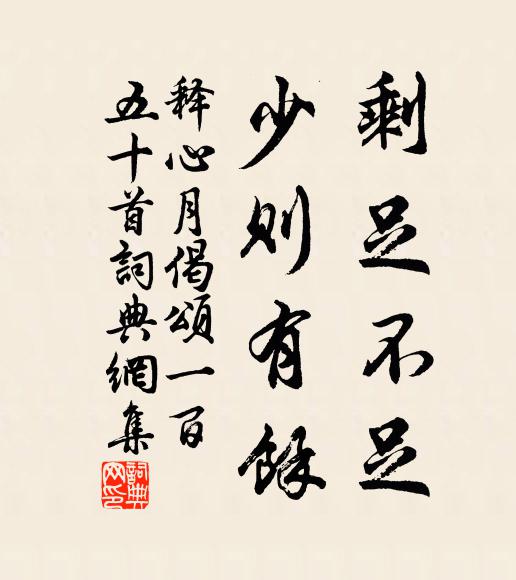 剩足不足
少则有馀
释心月偈頌一百
五十首詞典網集
詞典
网印